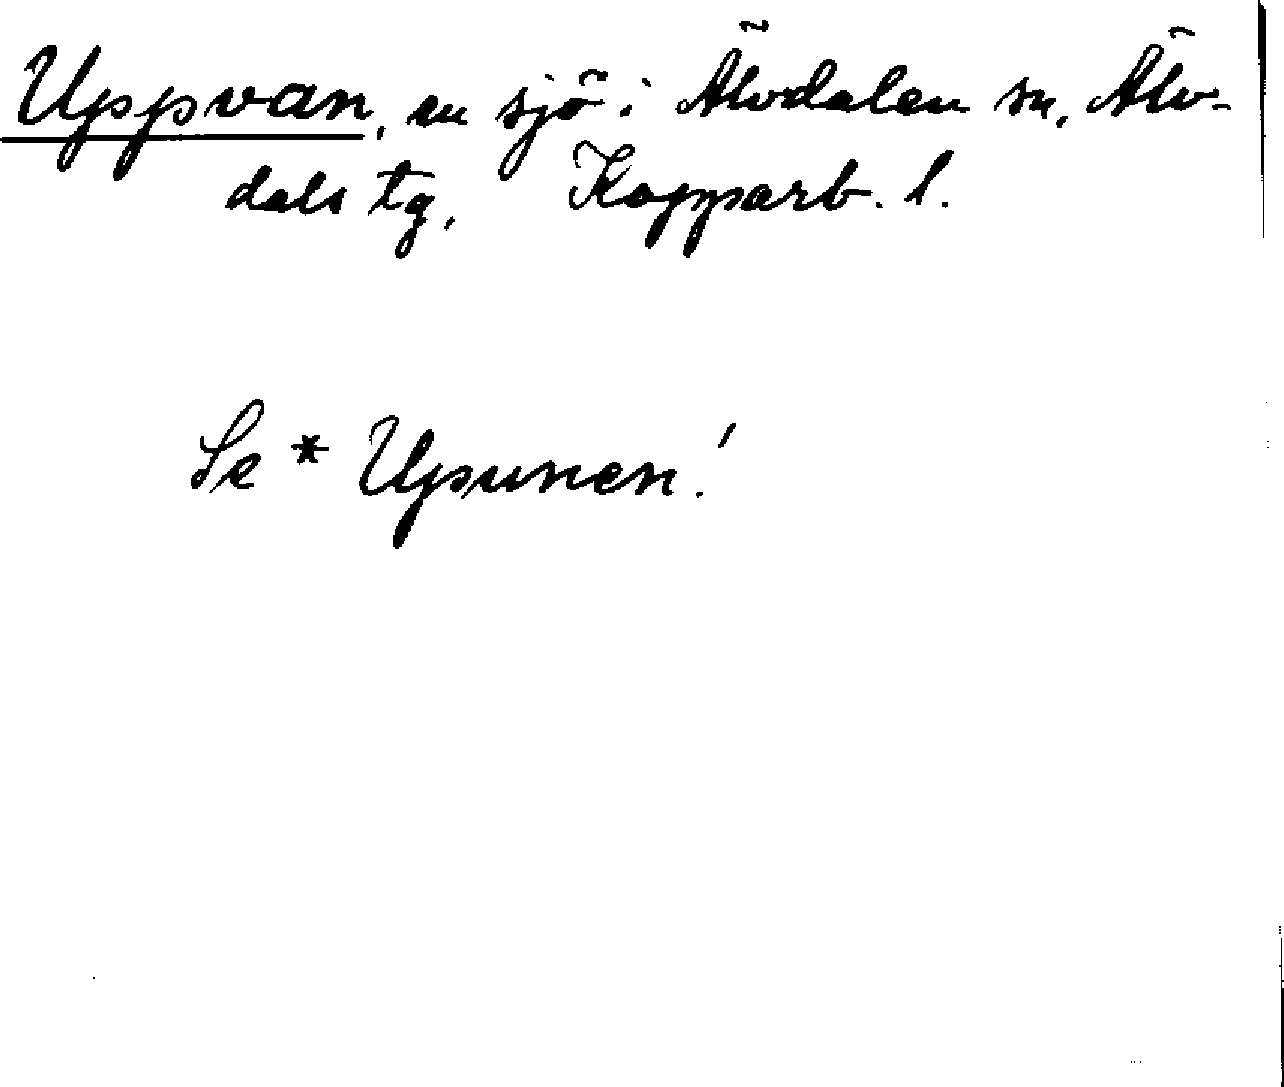 Uppvan, en sjö i Älvdalen sn, Älv-
dals tg, Kopparb. l.
Se * Upsunen!